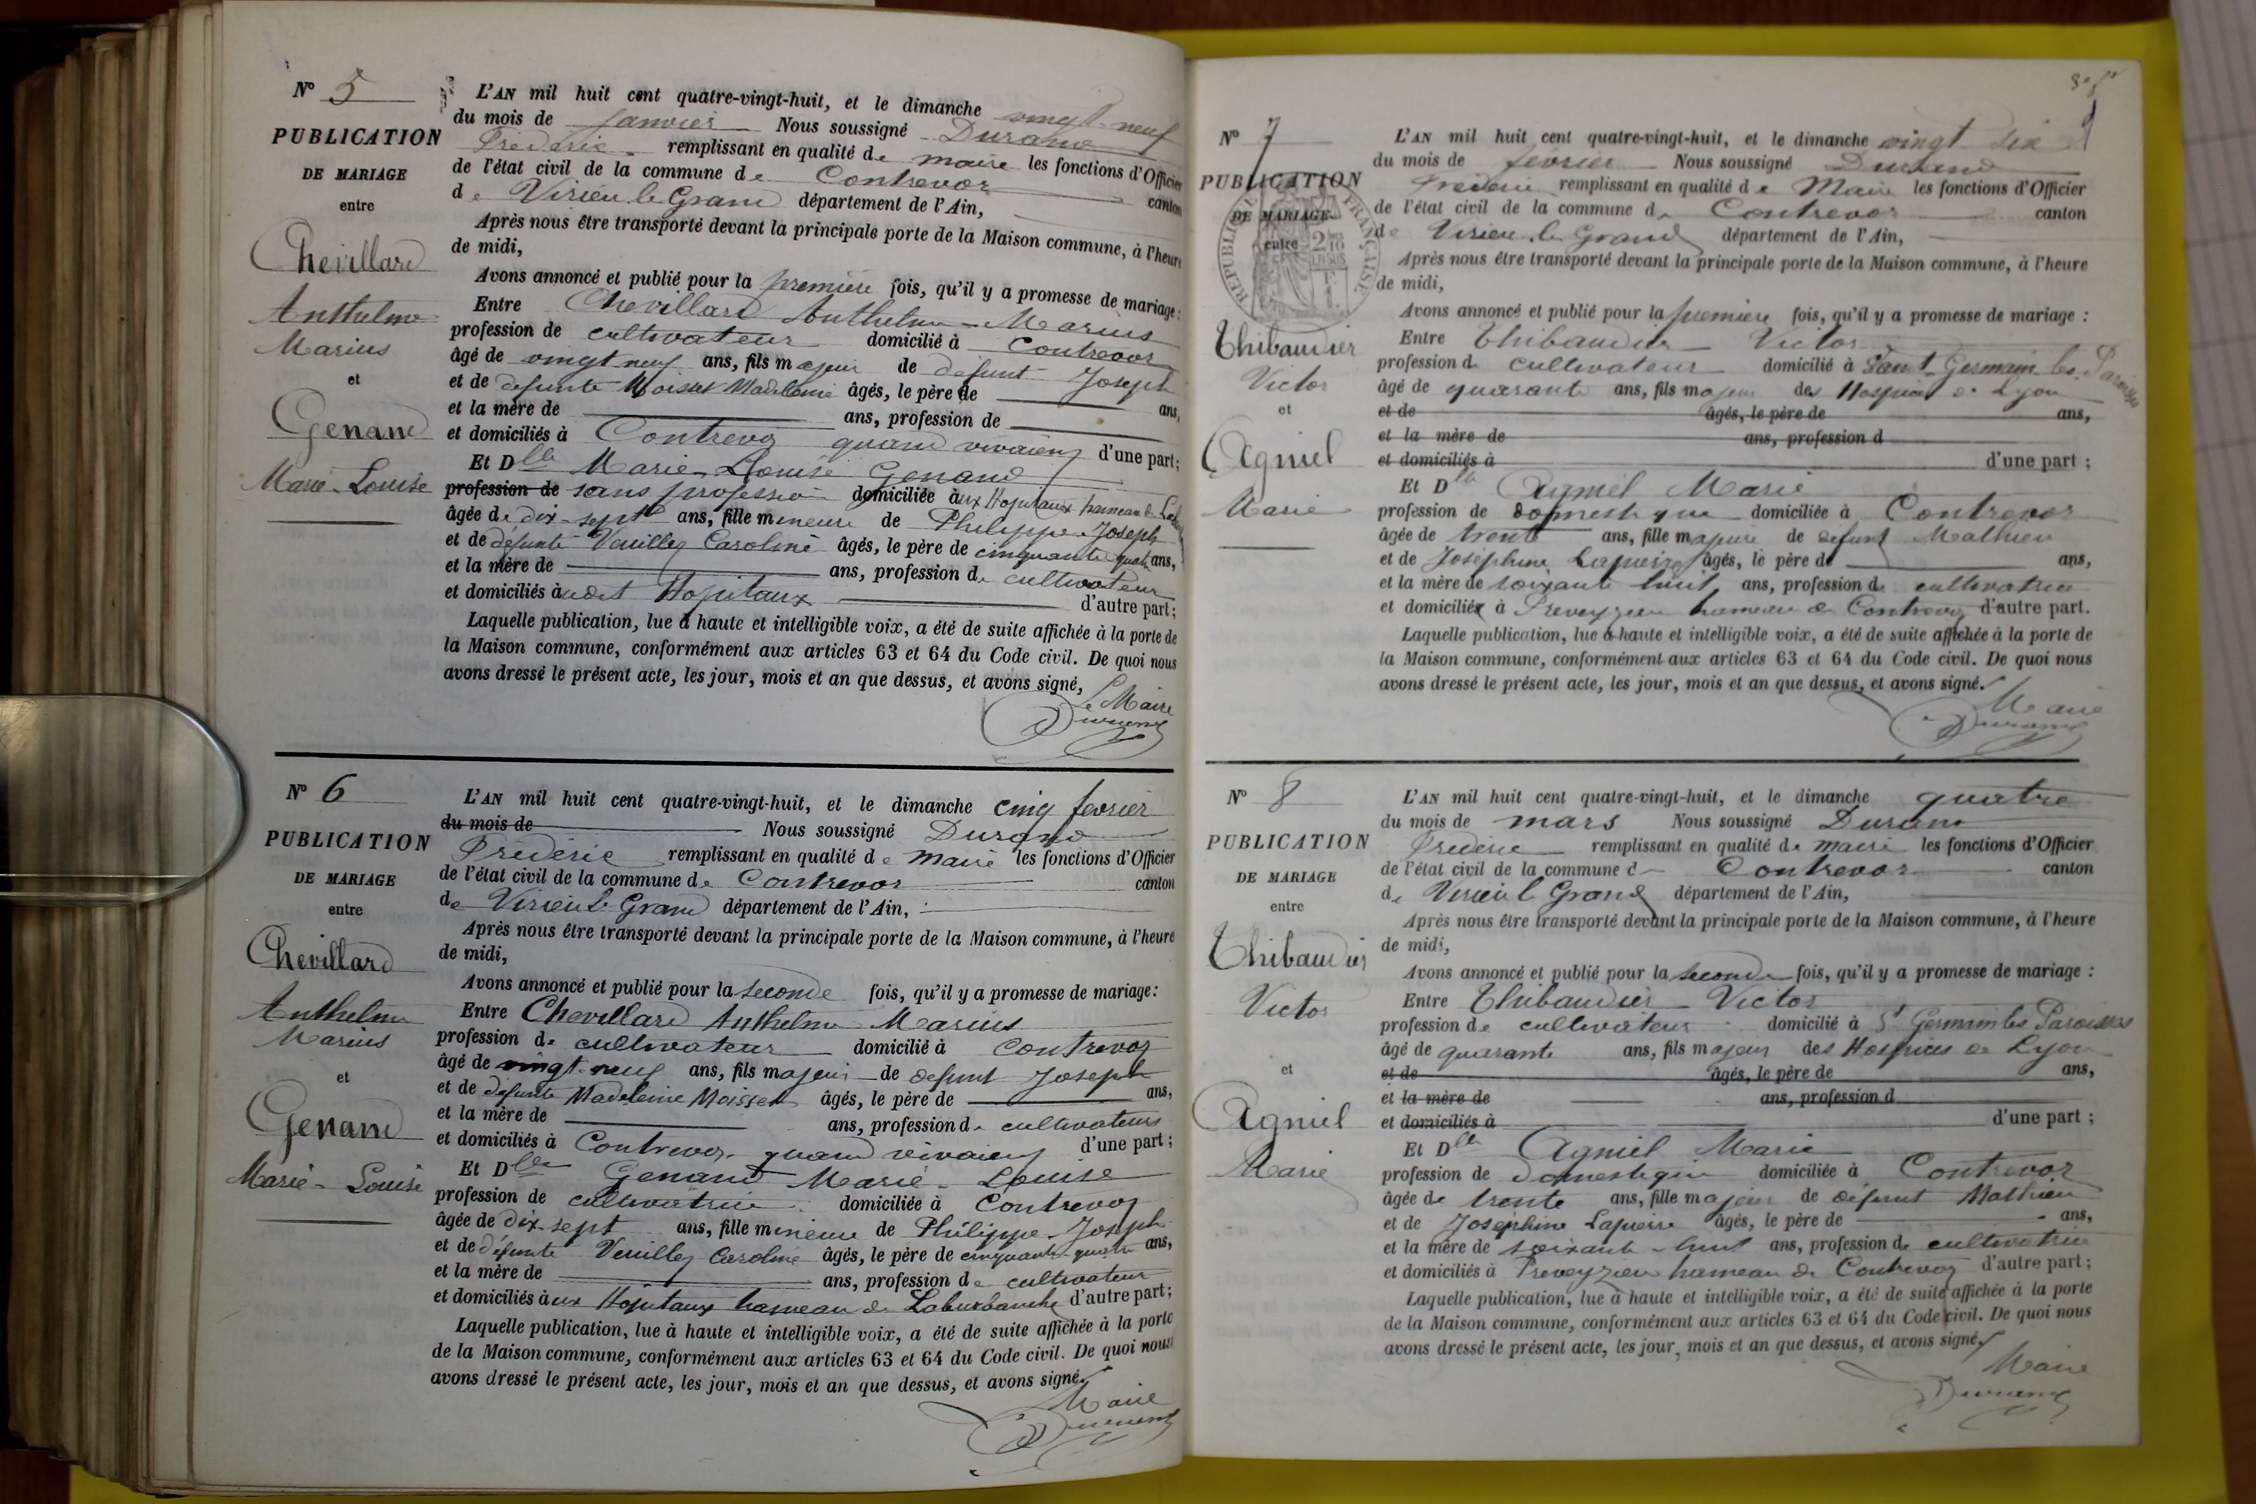 N° 5
PUBLICATION
DE MARIAGE
entre
Chevillard
Anthelme
Marius
et
Genand
Marie-Louise
L'AN mil huit cent quatre-vingt-huit, et le dimanche vingt-neuf
du mois de janvier Nous soussigné Durand
Fréderic remplissant en qualité de maire les fonctions d'Officier
de l'état civil de la commune de Contrevoz canton
de Virieu le Grand département de l'Ain,
Après nous être transporté devant la principale porte de la Maison commune, à l'heure
de midi,
Avons annoncé et publié pour la première fois, qu'il y a promesse de mariage:
Entre Chevillard Anthelme-Marius
profession de cultivateur domicilié à Contrevoz
âgé de vingt neuf ans, fils majeur de défunt Joseph
et de defunte Moisset Madeleine âgés, le père de ans,
et la mère de ans, profession de
et domiciliés à Contrevoz quand vivaient d'une part;
Et Dlle Marie-Louise Genand
profession de sans profession domiciliée aux Hopitaux hameau de
âgée de dix-sept ans, fille mineure de Philippe-Joseph
et de défunte Veuillez Caroline âgés, le père de cinquante quatre ans,
et la mère de ans, profession de cultivateur
et domiciliés à udit Hopitaux d'autre part;
Laquelle publication, lue à haute et intelligible voix, a été de suite affichée à la porte de
la Maison commune, conformément aux articles 63 et 64 du Code civil. De quoi nous
avons dressé le présent acte, les jour, mois et an que dessus, et avons signé,
Le Maire
Durand
N° 6
PUBLICATION
DE MARIAGE
entre
Chevillard
Anthelme
Marius
et
Genand
Marie-Louise
L'AN mil huit cent quatre-vingt-huit, et le dimanche cinq fevrier
du mois de Nous soussigné Durand
Fréderic remplissant en qualité de maire les fonctions d'Officier
de l'état civil de la commune de Contrevoz canton
de Virieu le Grand département de l'Ain,
Après nous être transporté devant la principale porte de la Maison commune, à l'heure
de midi,
Avons annoncé et publié pour la seconde fois, qu'il y a promesse de mariage:
Entre Chevillard Anthelme Marius
profession de cultivateur domicilié à Contrevoz
âgé de vingt-neuf ans, fils majeur de defunt Joseph
et de défunte Madeleine Moisset âgés, le père de ans,
et la mère de ans, profession de cultivateurs
et domiciliés à Contrevoz quand vivaient d'une part;
Et Dlle Genand Marie-Louise
profession de cultivatrice domiciliée à Contrevoz
âgée de dix-sept ans, fille mineure de Philippe-Joseph
et de défunte Veuillez Caroline âgés, le père de cinquante-quatre ans,
et la mère de ans, profession de cultivateur
et domiciliés à ux Hopitaux hameau de Laburbanche d'autre part;
Laquelle publication, lue à haute et intelligible voix, a été de suite affichée à la porte
de la Maison commune, conformément aux articles 63 et 64 du Code civil. De quoi nous
avons dressé le présent acte, les jour, mois et an que dessus, et avons signé.
Maire
Durand
N° 7
PUBLICATION
DE MARIAGE
entre
RÉPUBLIQUE FRANÇAISE
Thibaudier
Victor
et
Agniel
Marie
L'AN mil huit cent quatre-vingt-huit, et le dimanche vingt six
du mois de février Nous soussigné Durand
Fréderic remplissant en qualité de Maire les fonctions d'Officier
de l'état civil de la commune de Contrevoz canton
de Virieu le Grand département de l'Ain,
Après nous être transporté devant la principale porte de la Maison commune, à l'heure
de midi,
Avons annoncé et publié pour la première fois, qu'il y a promesse de mariage :
Entre Thibaudier Victor
profession de cultivateur domicilié à Saint Germain les Paroisses
âgé de quarante ans, fils majeur des Hospices de Lyon
et de âgés, le père de ans,
et la mère de ans, profession d
et domiciliés à d'une part ;
Et Dlle Agniel Marie
profession de domestique domiciliée à Contrevoz
âgée de trente ans, fille majeure de défunt Mathieu
et de Joséphine Lapierre âgés, le père de ans,
et la mère de soixante huit ans, profession de cultivatrice
et domiciliés à Preveyzieu hameau de Contrevoz d'autre part.
Laquelle publication, lue à haute et intelligible voix, a été de suite affichée à la porte de
la Maison commune, conformément aux articles 63 et 64 du Code civil. De quoi nous
avons dressé le présent acte, les jour, mois et an que dessus, et avons signé.
Maire
Durand
N° 8
PUBLICATION
DE MARIAGE
entre
Thibaudier
Victor
et
Agniel
Marie
L'AN mil huit cent quatre-vingt-huit, et le dimanche quatre
du mois de mars Nous soussigné Durand
Fréderic remplissant en qualité de maire les fonctions d'Officier
de l'état civil de la commune d Contrevoz canton
de Virieu le Grand département de l'Ain,
Après nous être transporté devant la principale porte de la Maison commune, à l'heure
de midi,
Avons annoncé et publié pour la seconde fois, qu'il y a promesse de mariage :
Entre Thibaudier Victor
profession de cultivateur domicilié à St Germain les Paroisses
âgé de quarante ans, fils majeur des Hospices de Lyon
et de âgés, le père de ans,
et la mère de ans, profession d
et domiciliés à d'une part ;
Et Dlle Agniel Marie
profession de domestique domiciliée à Contrevoz
âgée de trente ans, fille majeur de défunt Mathieu
et de Joséphine Lapierre âgés, le père de ans,
et la mère de soixante-huit ans, profession de cultivatrice
et domiciliés à Preveyzieu hameau de Contrevoz d'autre part ;
Laquelle publication, lue à haute et intelligible voix, a été de suite affichée à la porte
de la Maison commune, conformément aux articles 63 et 64 du Code civil. De quoi nous
avons dressé le présent acte, les jour, mois et an que dessus, et avons signé.
Maire
Durand